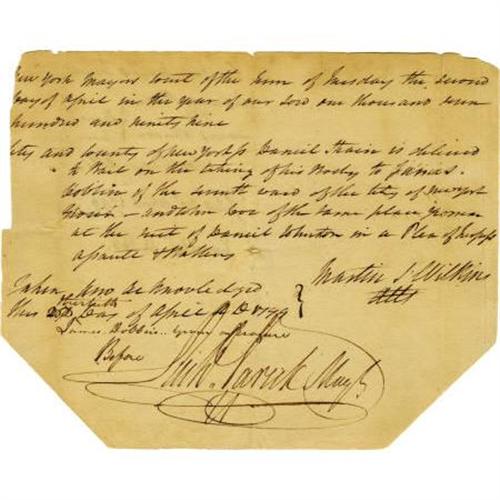 New York Mayors Court of the Term of Tuesday the second
Day of April in the year of our Lord one thousand seven
hundred and ninety nine
City and County of New York ss Daniel Thain is delivered
to Bail on the taking of his Body to James
Dobbin of the seventh ward of the City of New York
and John Coe of the same place
at the suit of Daniel Johnston in a Plea of Trespass
assault & Battery
Martin S Wilkins
Atty
Taken and acknowledged
this Day of April A D 1799
James Dobbin
Before
Rich. Varick Mayr